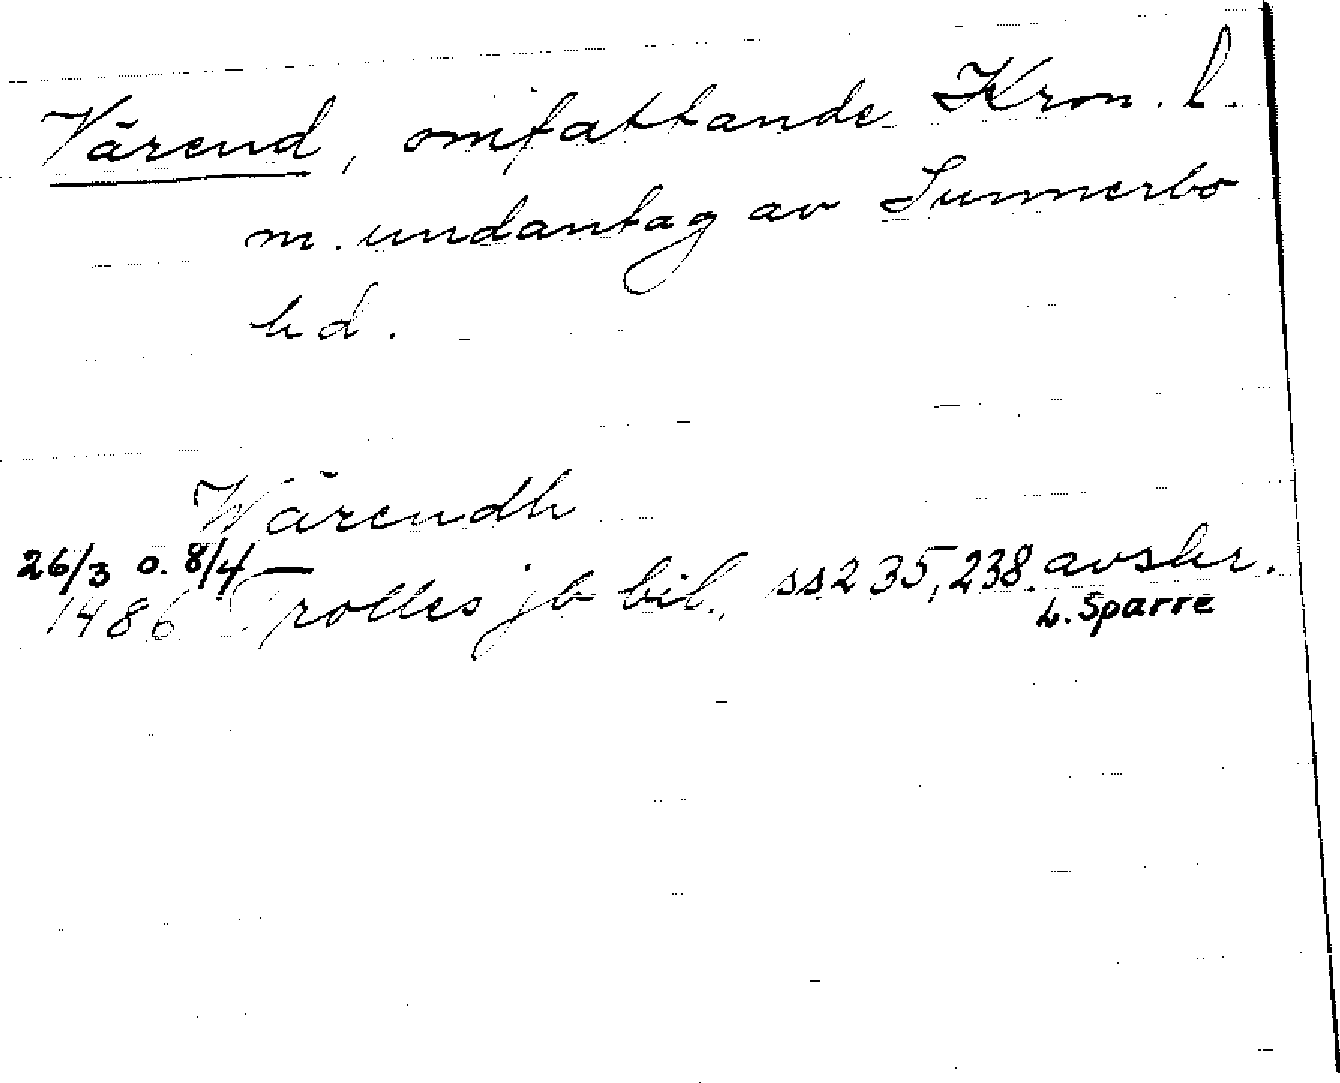 Värend, omfattande Kron. l.
m. undantag av Sunnerbo
hd.
Wärendh
26/3 o. 8/4
1486 Trolles jb bil., ss 235, 238. avskr.
L. Sparre